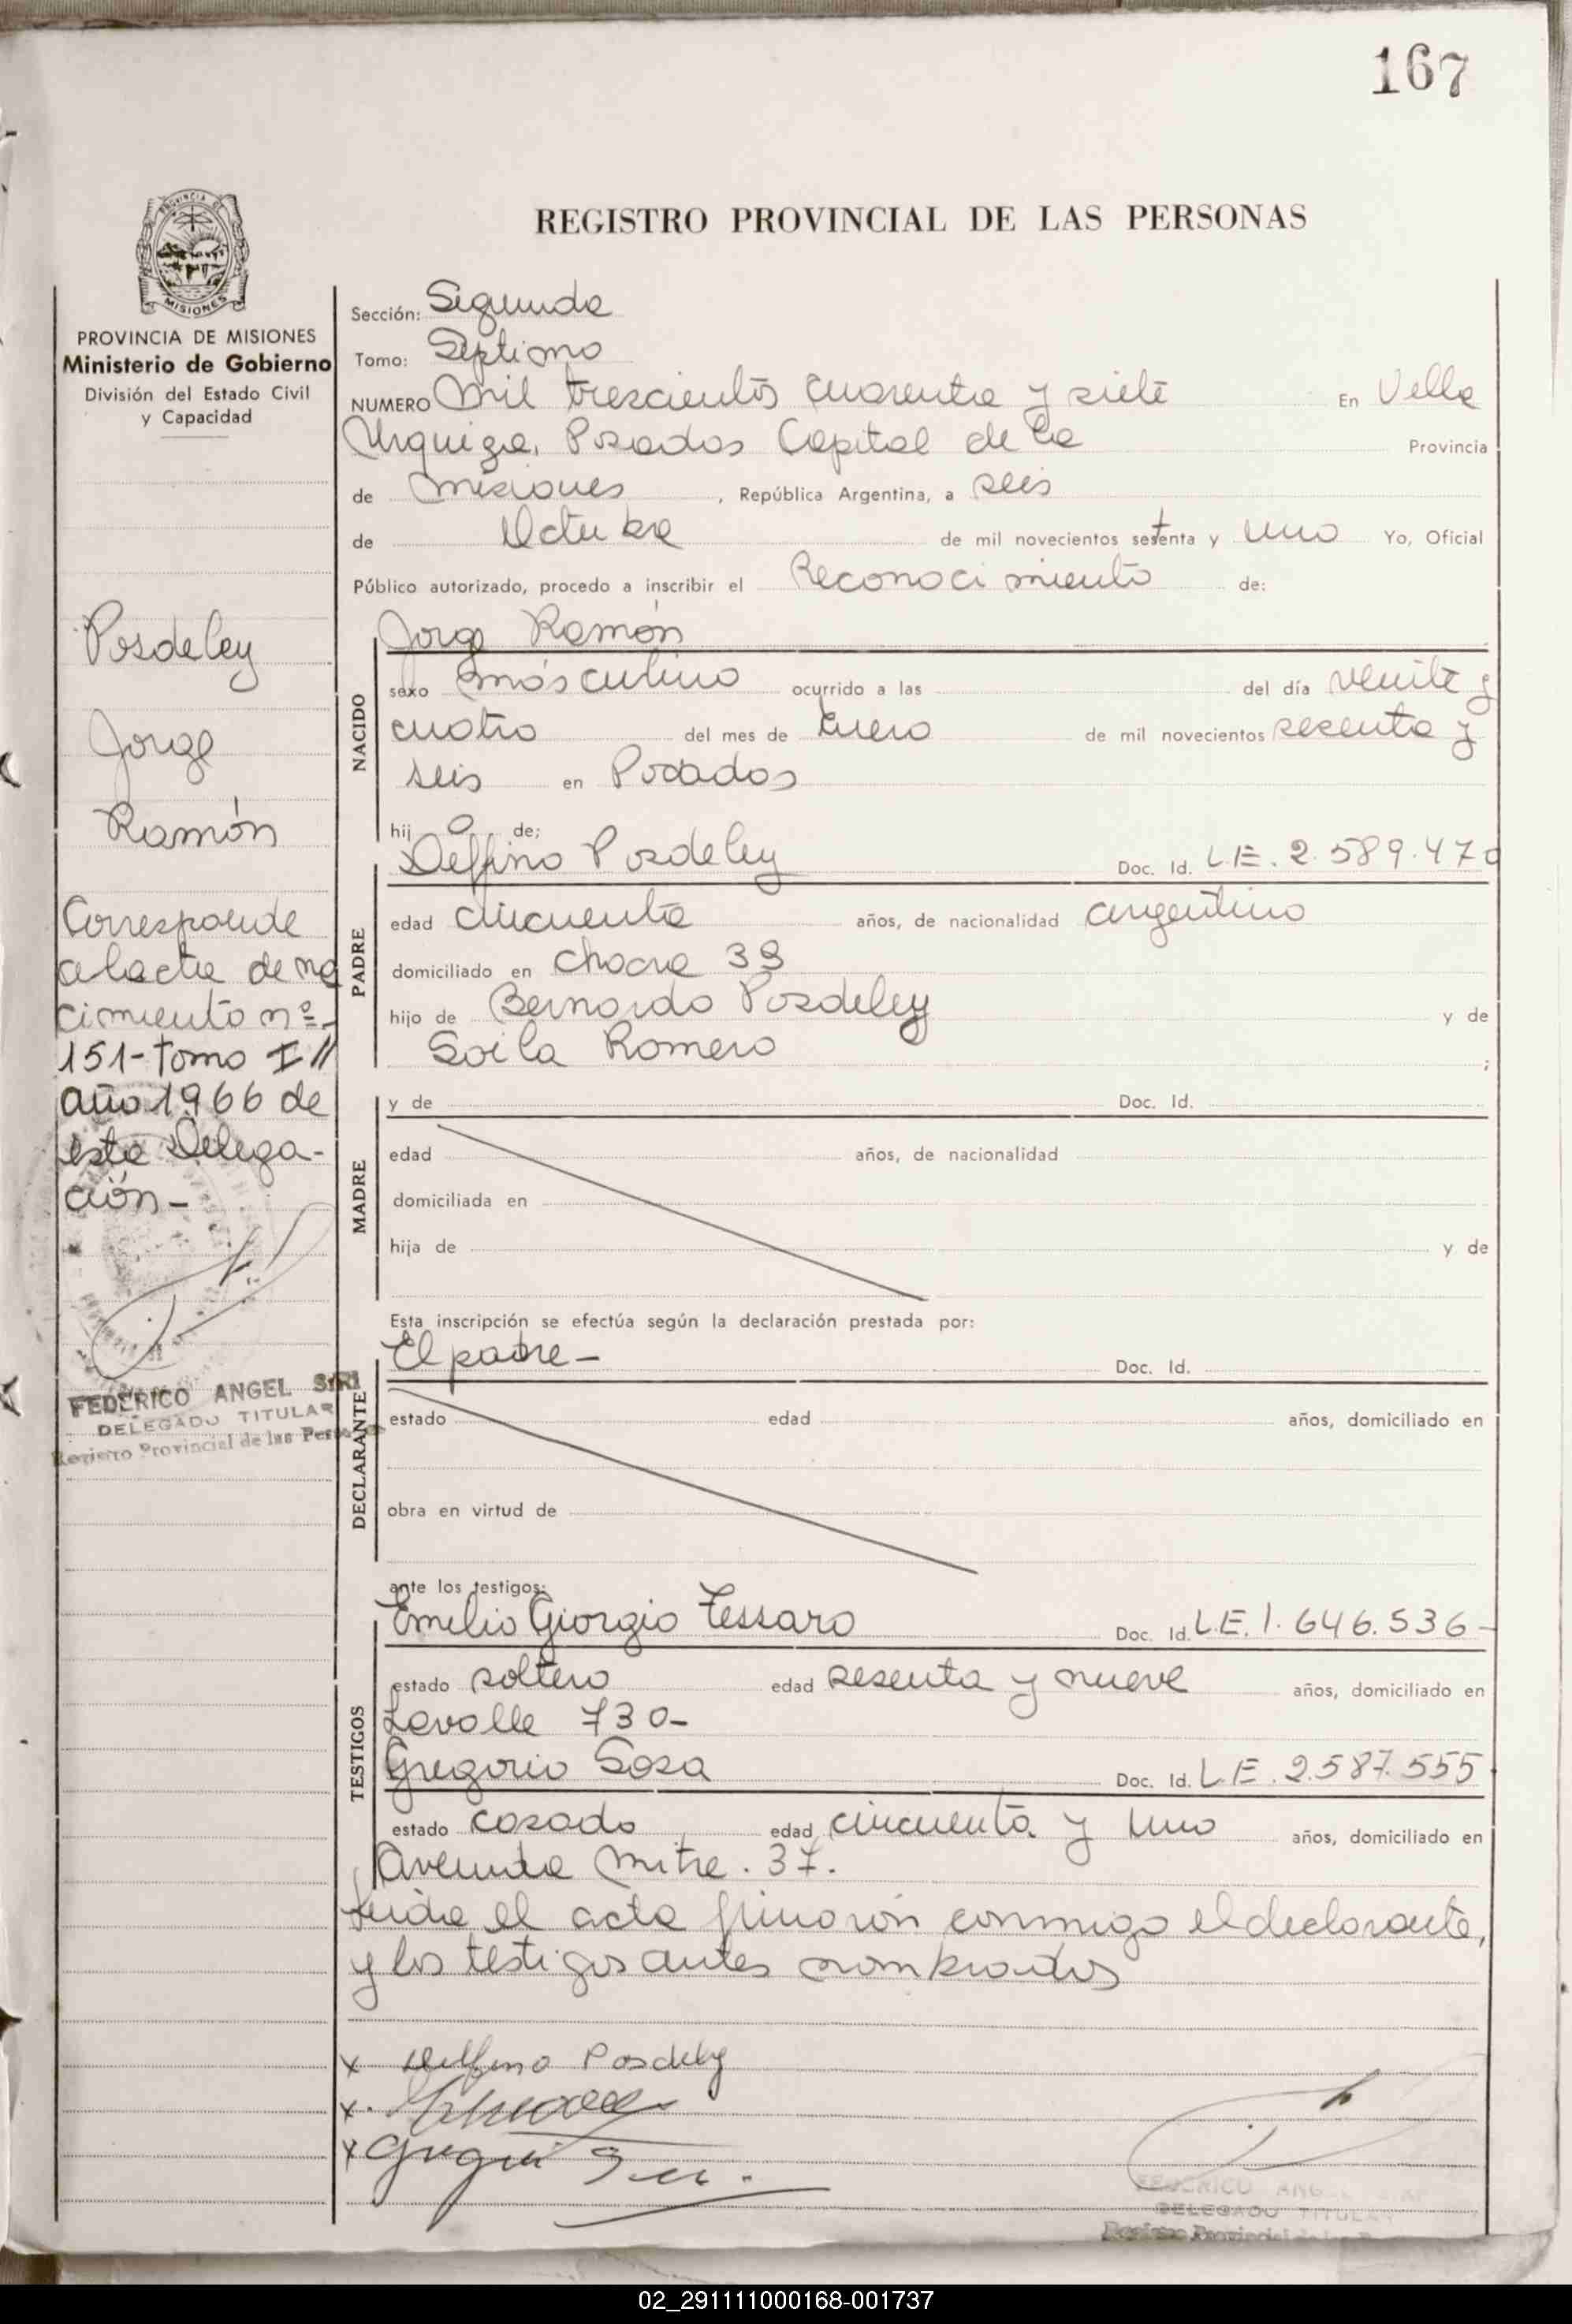 167
REGISTRO PROVINCIAL DE LAS PERSONAS
PROVINCIA DE MISIONES
MISIONES
PROVINCIA DE MISIONES
Ministerio de Gobierno
División del Estado Civil
y Capacidad
Posdeley
Jorge
Ramón
Corresponde
al acta de na
cimiento nº
151-tomo I//
año 1966 de
esta Delega-
ción-
FEDERICO ANGEL SIRI
DELEGADO TITULAR
Registro Provincial de las Personas
Sección: Segunda
Tomo: Séptimo
NUMERO Mil trescientos cuarenta y siete En Villa
Urquiza, Posadas Capital de la Provincia
de Misiones, República Argentina, a seis
de Octubre de mil novecientos setenta y uno Yo, Oficial
Público autorizado, procedo a inscribir el Reconocimiento de:
Jorge Ramón
NACIDO
sexo másculino ocurrido a las del día veinte y
cuatro del mes de Enero de mil novecientos sesenta y
seis en Posadas
hijo de:
Delfino Posdeley Doc. Id. L.E. 2.589.470
PADRE
edad cincuenta años, de nacionalidad argentino
domiciliado en chacra 39
hijo de Bernardo Posdeley y de
Soila Romero ;
MADRE
y de Doc. Id.
edad años, de nacionalidad
domiciliada en
hija de y de
Esta inscripción se efectúa según la declaración prestada por:
El padre- Doc. Id.
DECLARANTE
estado edad años, domiciliado en
obra en virtud de
ante los testigos:
Emilio Giorgio Tessaro Doc. Id. L.E. 1.646.536-
TESTIGOS
estado soltero edad sesenta y nueve años, domiciliado en
Lavalle 730-
Gregorio Sosa Doc. Id. L.E. 2.587.555
estado casado edad cincuenta y uno años, domiciliado en
Avenida Mitre. 37.
Leida el acta firmaron conmigo el declarante,
y los testigos antes nombrados
x Delfino Posdeley
x.
x
FEDERICO ANGEL SIRI
DELEGADO TITULAR
Registro Provincial de las P
02_291111000168-001737